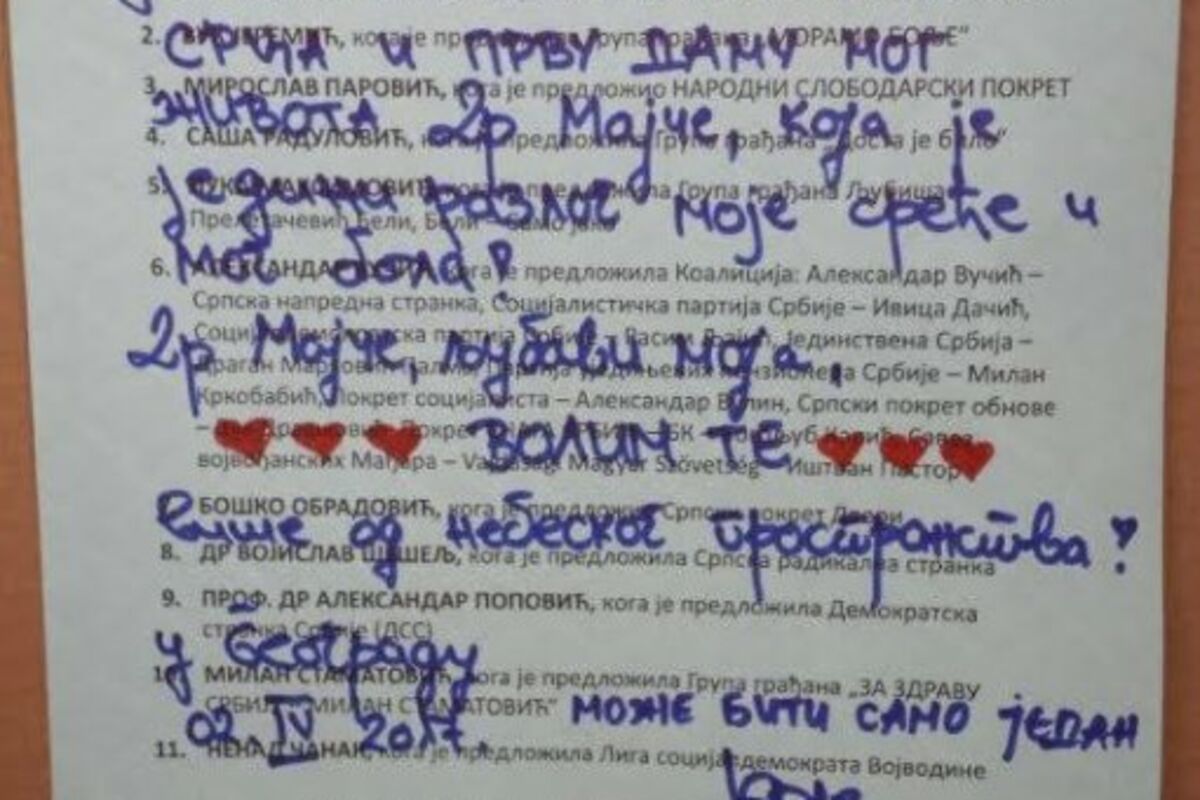 2. ВУК ЈЕРЕМИЋ, кога је предложила Група грађана „МОРАМО БОЉЕ“
СРЦА И ПРВУ ДАМУ МОГ
3. МИРОСЛАВ ПАРОВИЋ, кога је предложио НАРОДНИ СЛОБОДАРСКИ ПОКРЕТ
ЖИВОТА 2р Мајче, која је
4. САША РАДУЛОВИЋ, кога је предложила Група грађана „Доста је било“
једини разлог моје среће и
5. ЛУКА МАКСИМОВИЋ, кога је предложила Група грађана Љубиша
Прелетачевић Бели, Бели – Само јако
мог бола?
6. АЛЕКСАНДАР кога је предложила Коалиција: Александар Вучић –
Српска напредна странка, Социјалистичка партија Србије – Ивица Дачић,
2р Мајче, љубави моја,
Социјалдемократска партија Србије – Расим Љајић, Јединствена Србија –
Драган Марковић Палма, Партија уједињених пензионера Србије – Милан
Кркобабић, Покрет социјалиста – Александар Вулин, Српски покрет обнове
ВОЛИМ ТЕ
– Покрет СНАГА СРБИЈЕ – БК – Богољуб Карић, Савез
војвођанских Мађара – Vajdasági Magyar Szövetség – Иштван Пастор
више од небеског пространства!
БОШКО ОБРАДОВИЋ, кога је предложио Српски покрет Двери
8. ДР ВОЈИСЛАВ ШЕШЕЉ, кога је предложила Српска радикална странка
9. ПРОФ. ДР АЛЕКСАНДАР ПОПОВИЋ, кога је предложила Демократска
странка Србије (ДСС)
у београду
10. МИЛАН СТАМАТОВИЋ, кога је предложила Група грађана „ЗА ЗДРАВУ
СРБИЈУ – МИЛАН СТАМАТОВИЋ“
02. IV 2017. МОЖЕ БИТИ САМО ЈЕДАН
11. НЕНАД ЧАНАК, кога је предложила Лига социјалдемократа Војводине